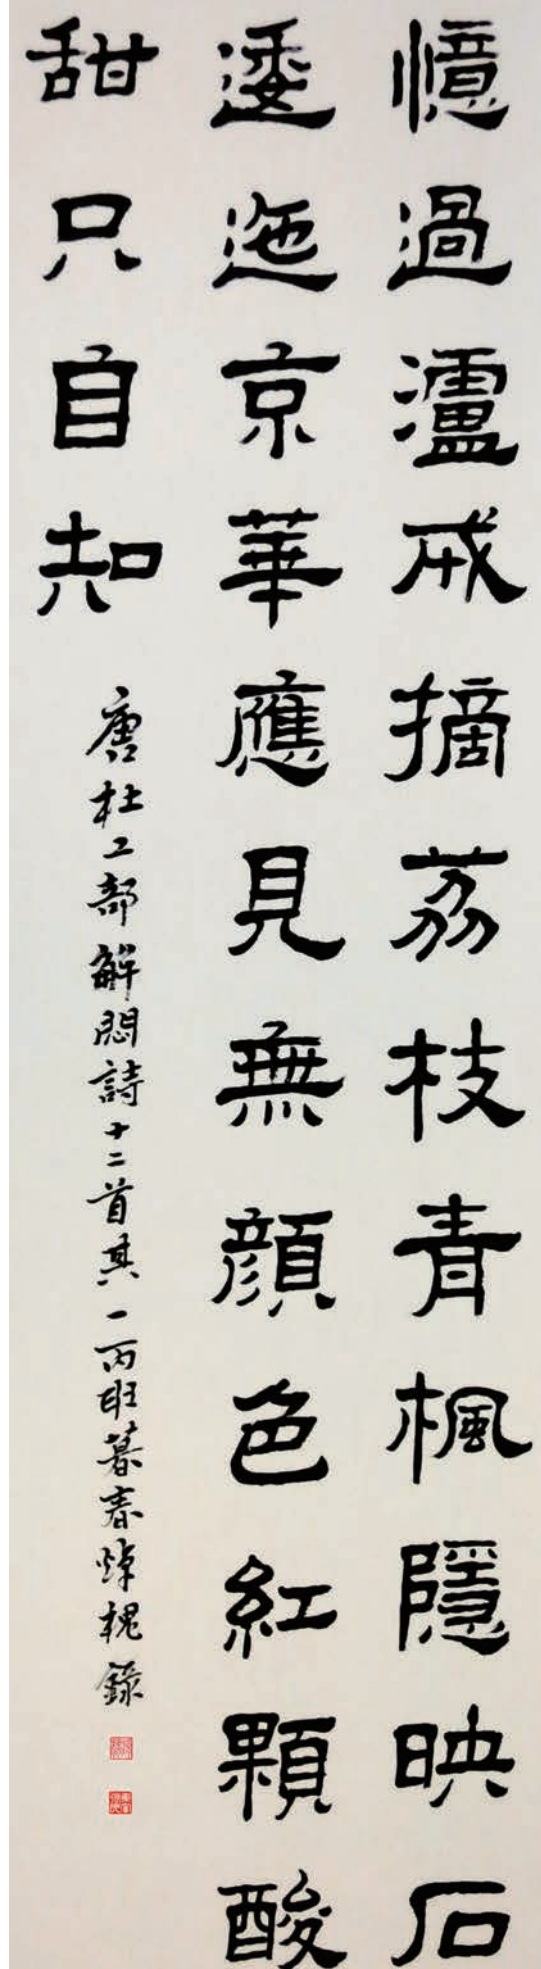 憶過瀘戎摘荔枝青楓隱映石
逶迤京華應見無顏色紅顆酸
甜只自知
唐杜工部解悶詩十二首其一丙旺暮春焯槐錄